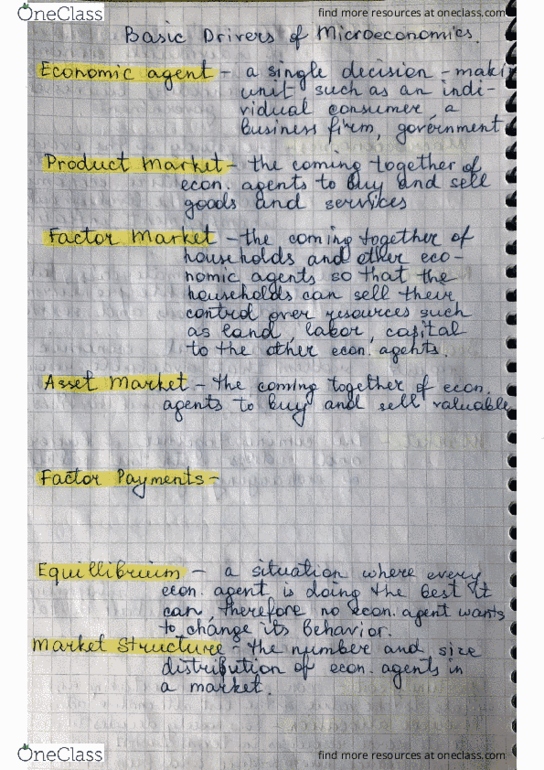 OneClass
find more resources at oneclass.com
Basic Drivers of Microeconomics.
Economic agent - a single decision - maki
unit such as an indi-
vidual consumer, a
business firm, government
Product Market - the coming together of
econ. agents to buy and sell
goods and services
Factor Market - the coming together of
households and other eco-
nomic agents so that the
households can sell their
control over resources such
as land, labor, capital
to the other econ. agents.
Asset Market - the coming together of econ.
agents to buy and sell valuable
Factor Payments -
Equillibrium - a situation where every
econ. agent is doing the best it
can, therefore no econ. agent wants
to change its behavior.
Market Structure - the number and size
distribution of econ. agents in
a market.
OneClass
find more resources at oneclass.com